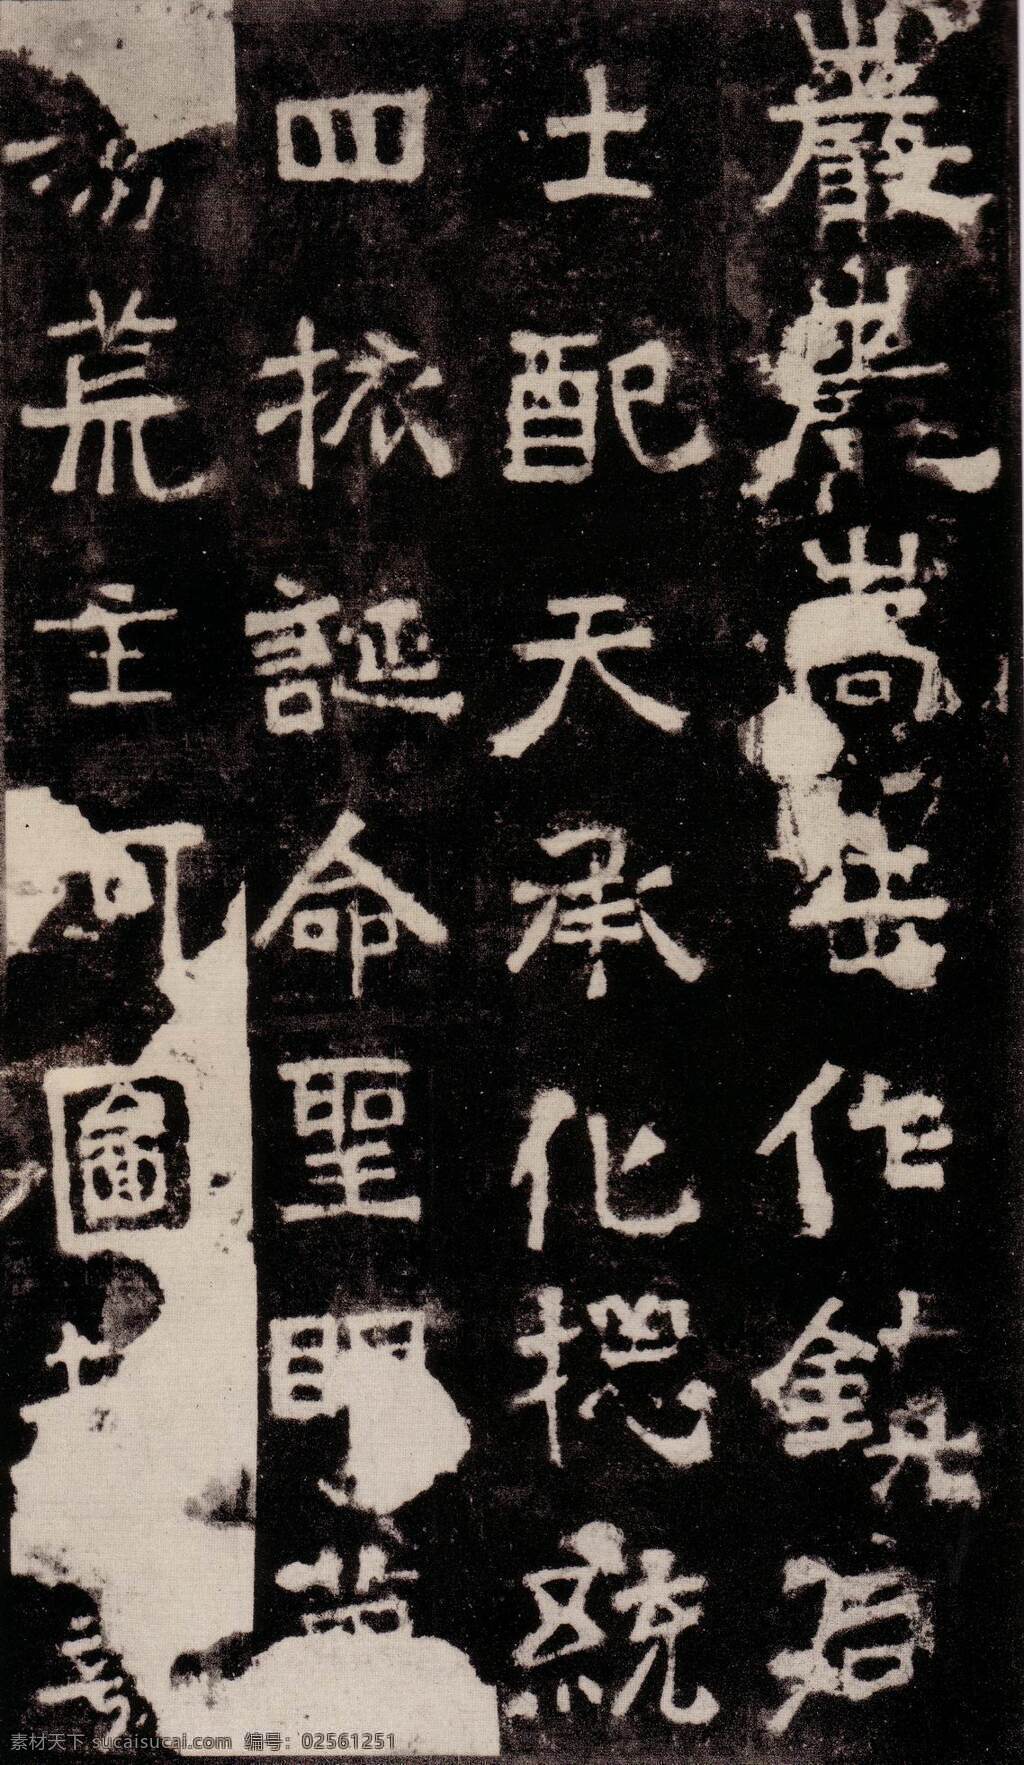 嚴農嵩岳作鎮后
土配天承化揔統
四挀誕命聖
荒主河圖
素材天下 sucaisucai.com 编号：02561251